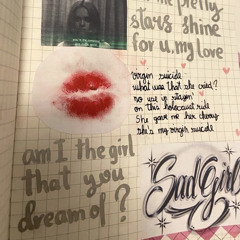 me pretty
stars shine
for u, my love
virgin suicide
what was that she cried?
no use in stayin'
on this holocaust ride
She gave me her cherry
she's my virgin suicide
am I the girl
that you
dream of?
Sad Girl